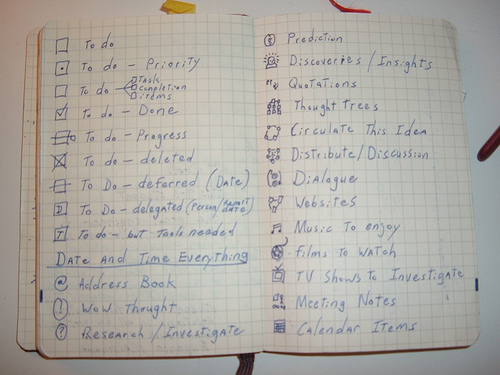 To do
To do - Priority
To do - Task
Completion
items
To do - Done
To do - Progress
To do - deleted
To Do - deferred (Date)
D To Do - delegated (Person/ Date)
T To do - but Tools needed
Date And Time Everything
@ Address Book
! Wow Thought
? Research / Investigate
Prediction
Discoveries / Insights
Quotations
Thought Trees
Circulate This Idea
Distribute / Discussion
Dialogue
Websites
Music To enjoy
Films To Watch
TV Shows To Investigate
Meeting Notes
Calendar Items